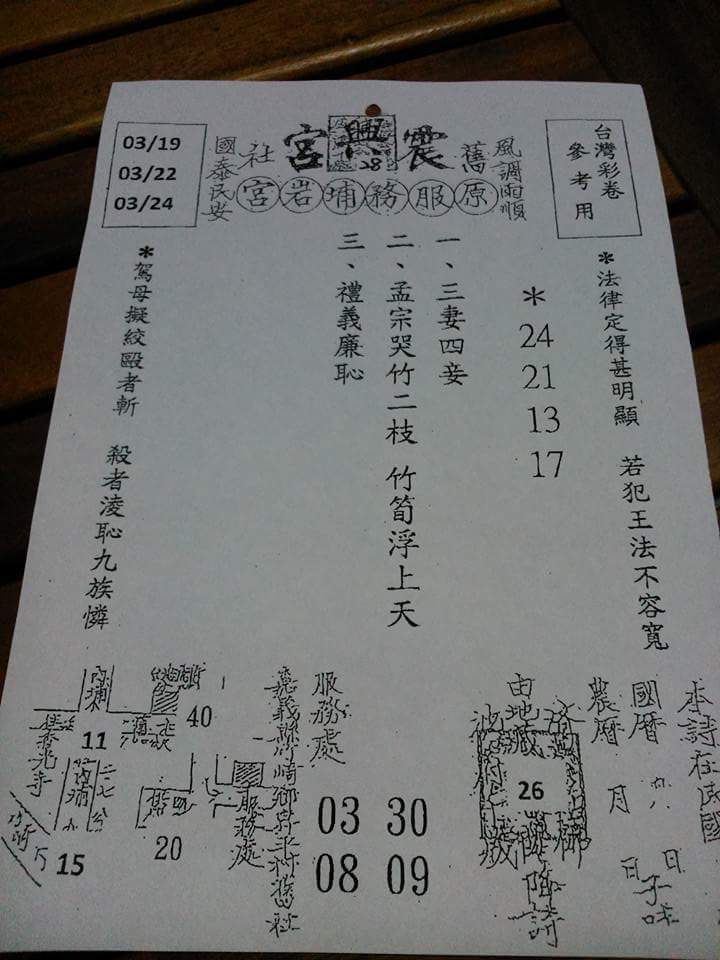 台灣彩卷
參考用
風調雨順
舊 震興宮 社
28
國泰民安
原服務埔岩宮
03/19
03/22
03/24
*法律定得甚明顯 若犯王法不容寬
*
24
21
13
17
一、三妻四妾
二、孟宗哭竹二枝 竹筍浮上天
三、禮義廉恥
*駕母擬絞毆者斬 殺者淩恥九族憐
本詩在民國
國曆 月 日
農曆 月 日子
由地藏
降詩
26
服務處
03 30
08 09
嘉義縣竹崎鄉昇平村舊社
服務處
內埔
40
11
20
15